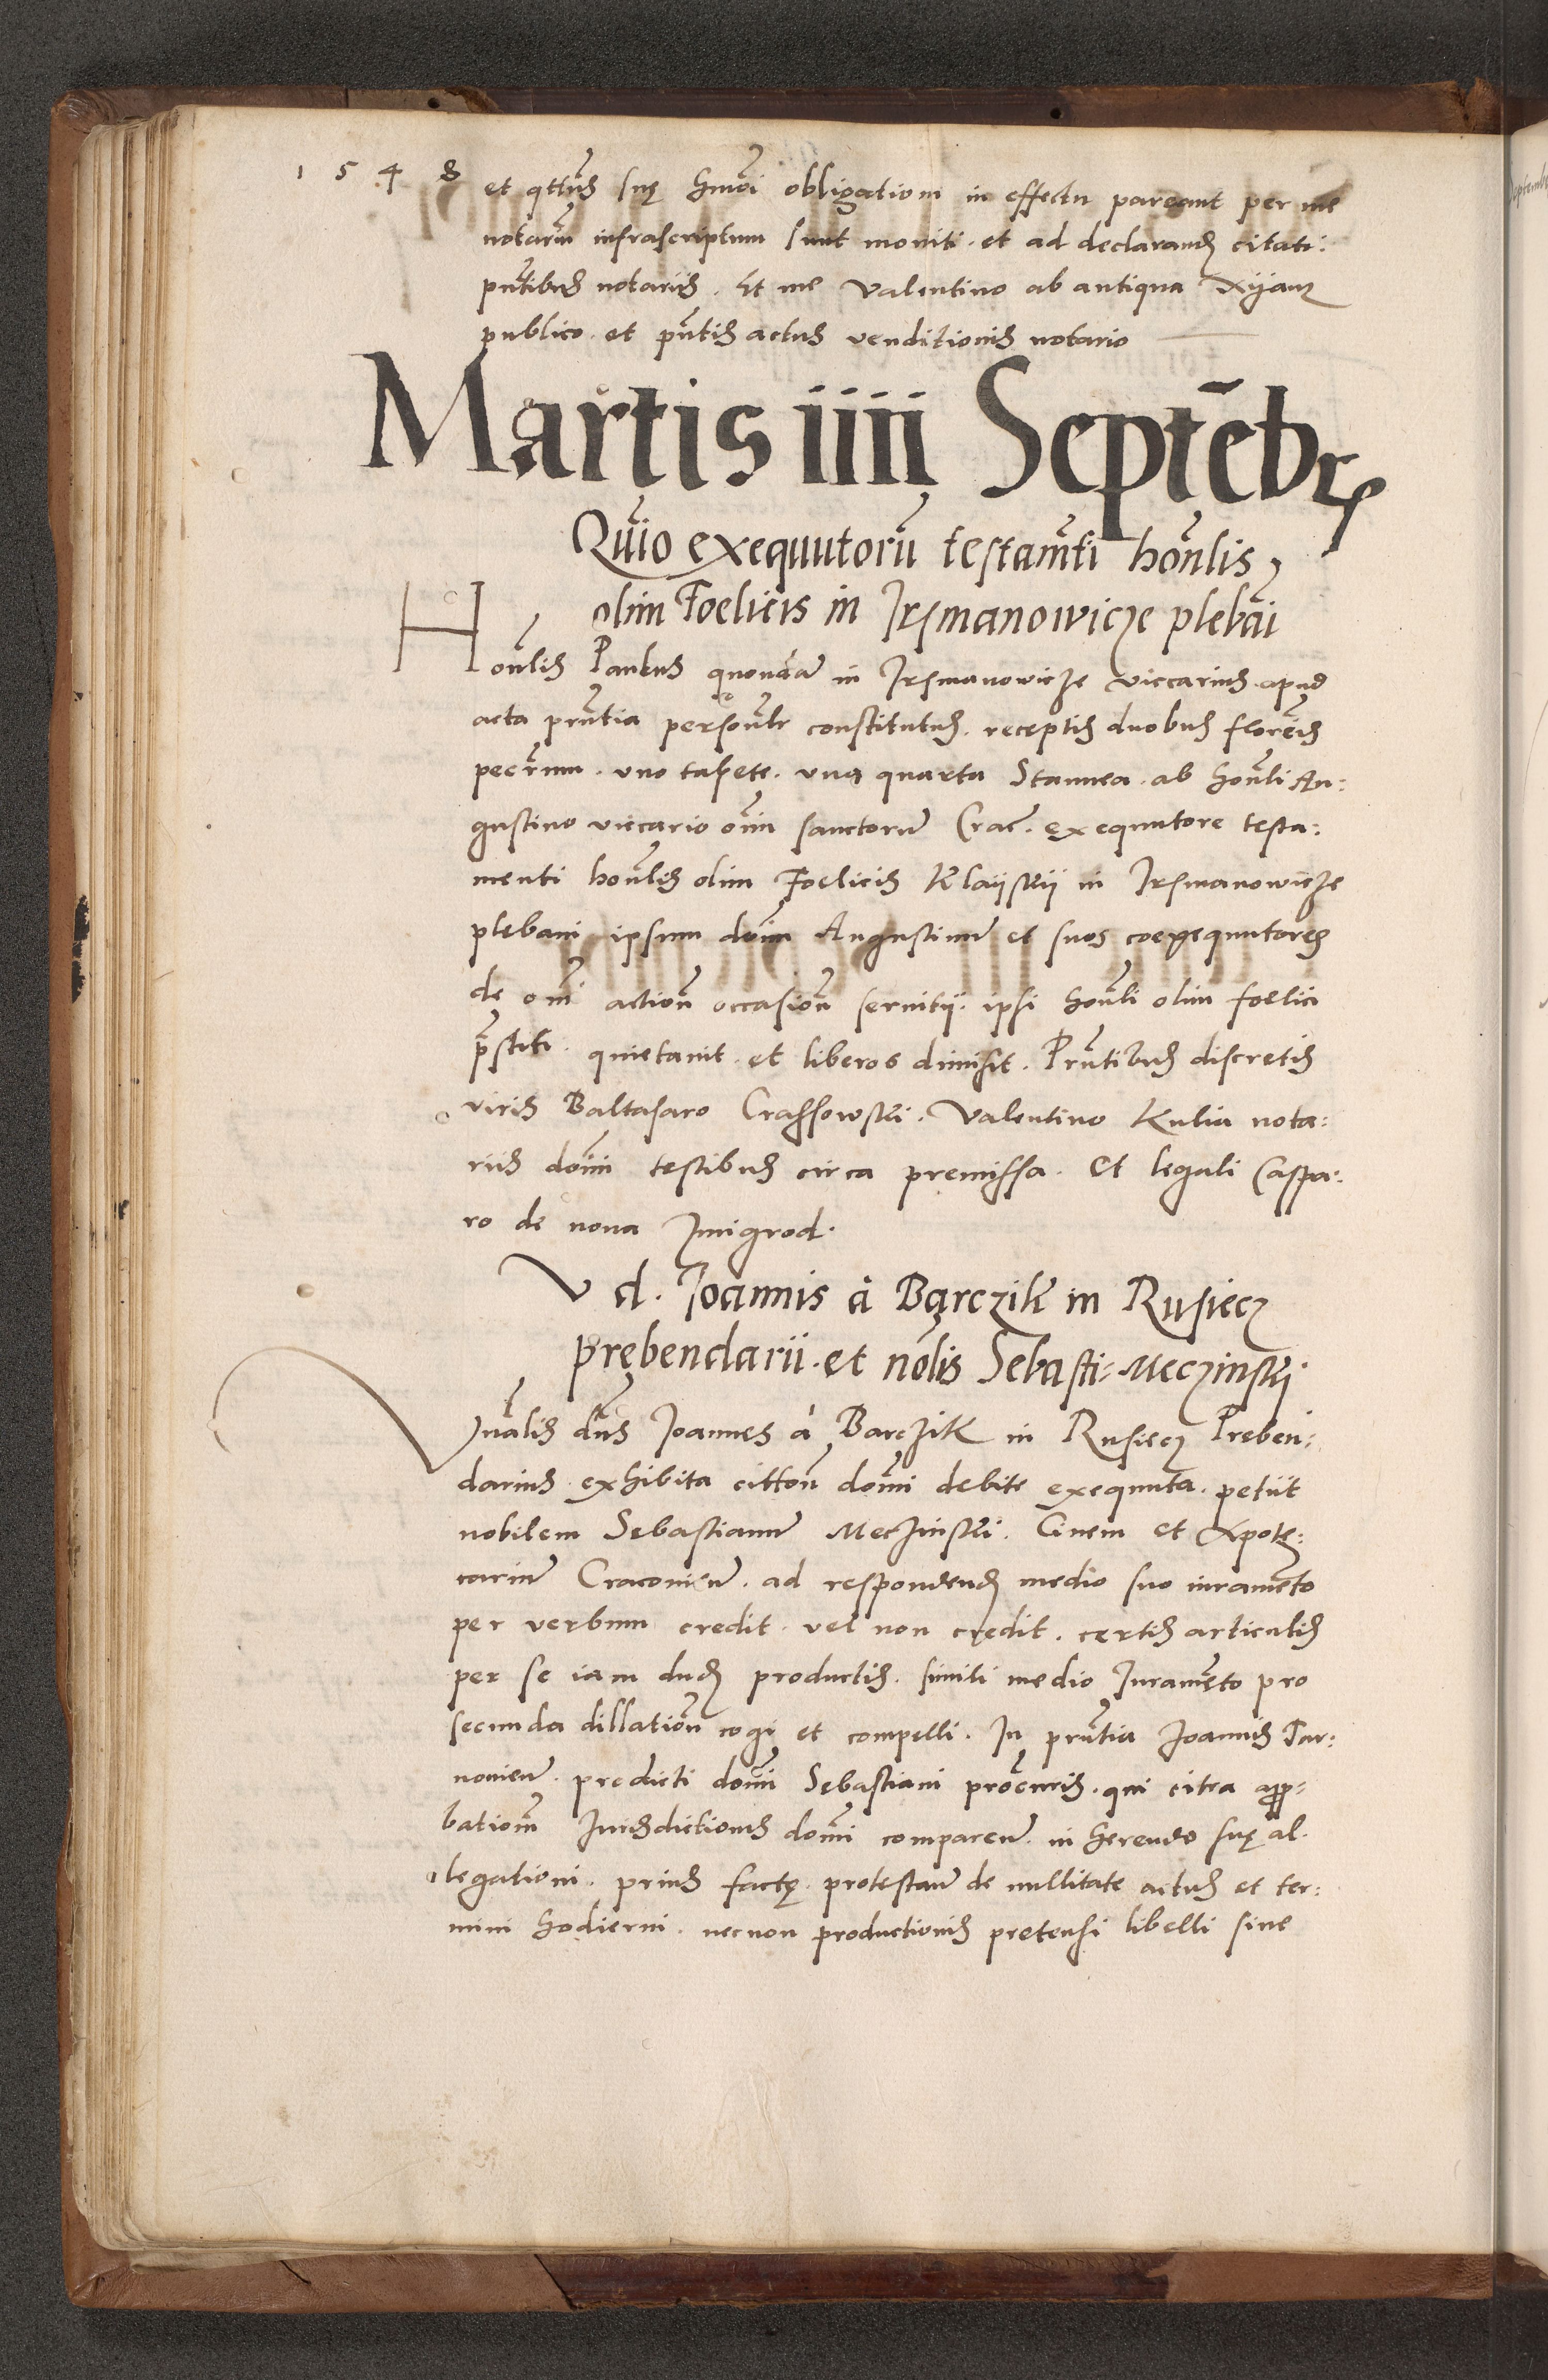 1 5 4 8
et qttus suę hmoi obligationi in effectu pareant per me
notariū infrascriptum sunt moniti. et ad declarand citati:
pntibus notariis. Et me Valentino ab antiqua
publico. et pntis actus venditionis notario
Martis iiii Septēbr
Quio exequutorū testamti honlis
olim Foelicis in Irzmanowicze plebāi
Honlis Paulus quondā in Irzmanowicze viccarius apud
acta prntia personlr constitutus. receptis duobus florenis
pecrium. vno tapete. vna quarta Stannea. ab honli Au:
gustino viccario oīm sanctorū Crac. exequutore testa:
menti honlis olim Foelicis Klayskii in Irzmanowicze
plebani ipsum dōm Augustinū et suos coexequutores
de omi actioni occasioni seruitij. ipsi honli olim foelici
pstiti. quietauit. et liberos dimisit. Prntibus discretis
viris Baltasaro Crassowski. Valentino Kulia nota:
riis domi testibus circa premissa. Et legali Caspa:
ro de noua Imigrod.
V d. Joannis à Barczik in Rusiecz
prębendarii. et nōlis Sebasti- Meczinski
Vnālis dns Joannes à Barczik in Rusiecz Preben:
darius. exhibita cittoni domi debite exequuta. petiit
nobilem Sebastianū Meczinski. Ciuem et Apote:
cariū Cracouien. ad respondend medio suo iuramēto
per verbum credit. vel non credit. certis articulis
per se iam dud productis. simili medio Juramēto pro
secunda dillationi cogi et compelli. In prntia Joannis Tar:
nouien. predicti domi Sebastiani procuris. qui citra app-
bationi Jurisdictionis domi comparen. in herendo suę al.
legationi. prius factę. protestaū de nullitate actus et ter:
mini hodierni. necnon productionis pretensi libelli siue